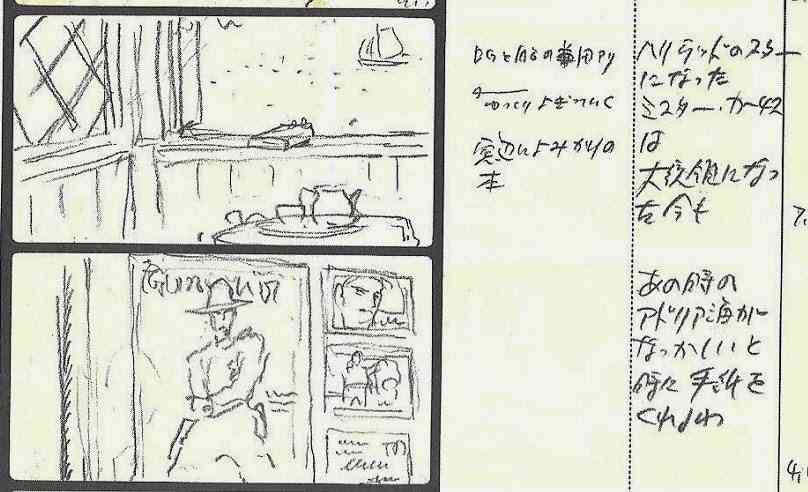 ゆっくりよぎっていく
窓辺によみかけの
本
ハリウッドのスター
になった
ミスター・カーチス
は
大統領になっ
た今も
あの時の
アドリア海が
なつかしいと
時々 手紙を
くれるわ